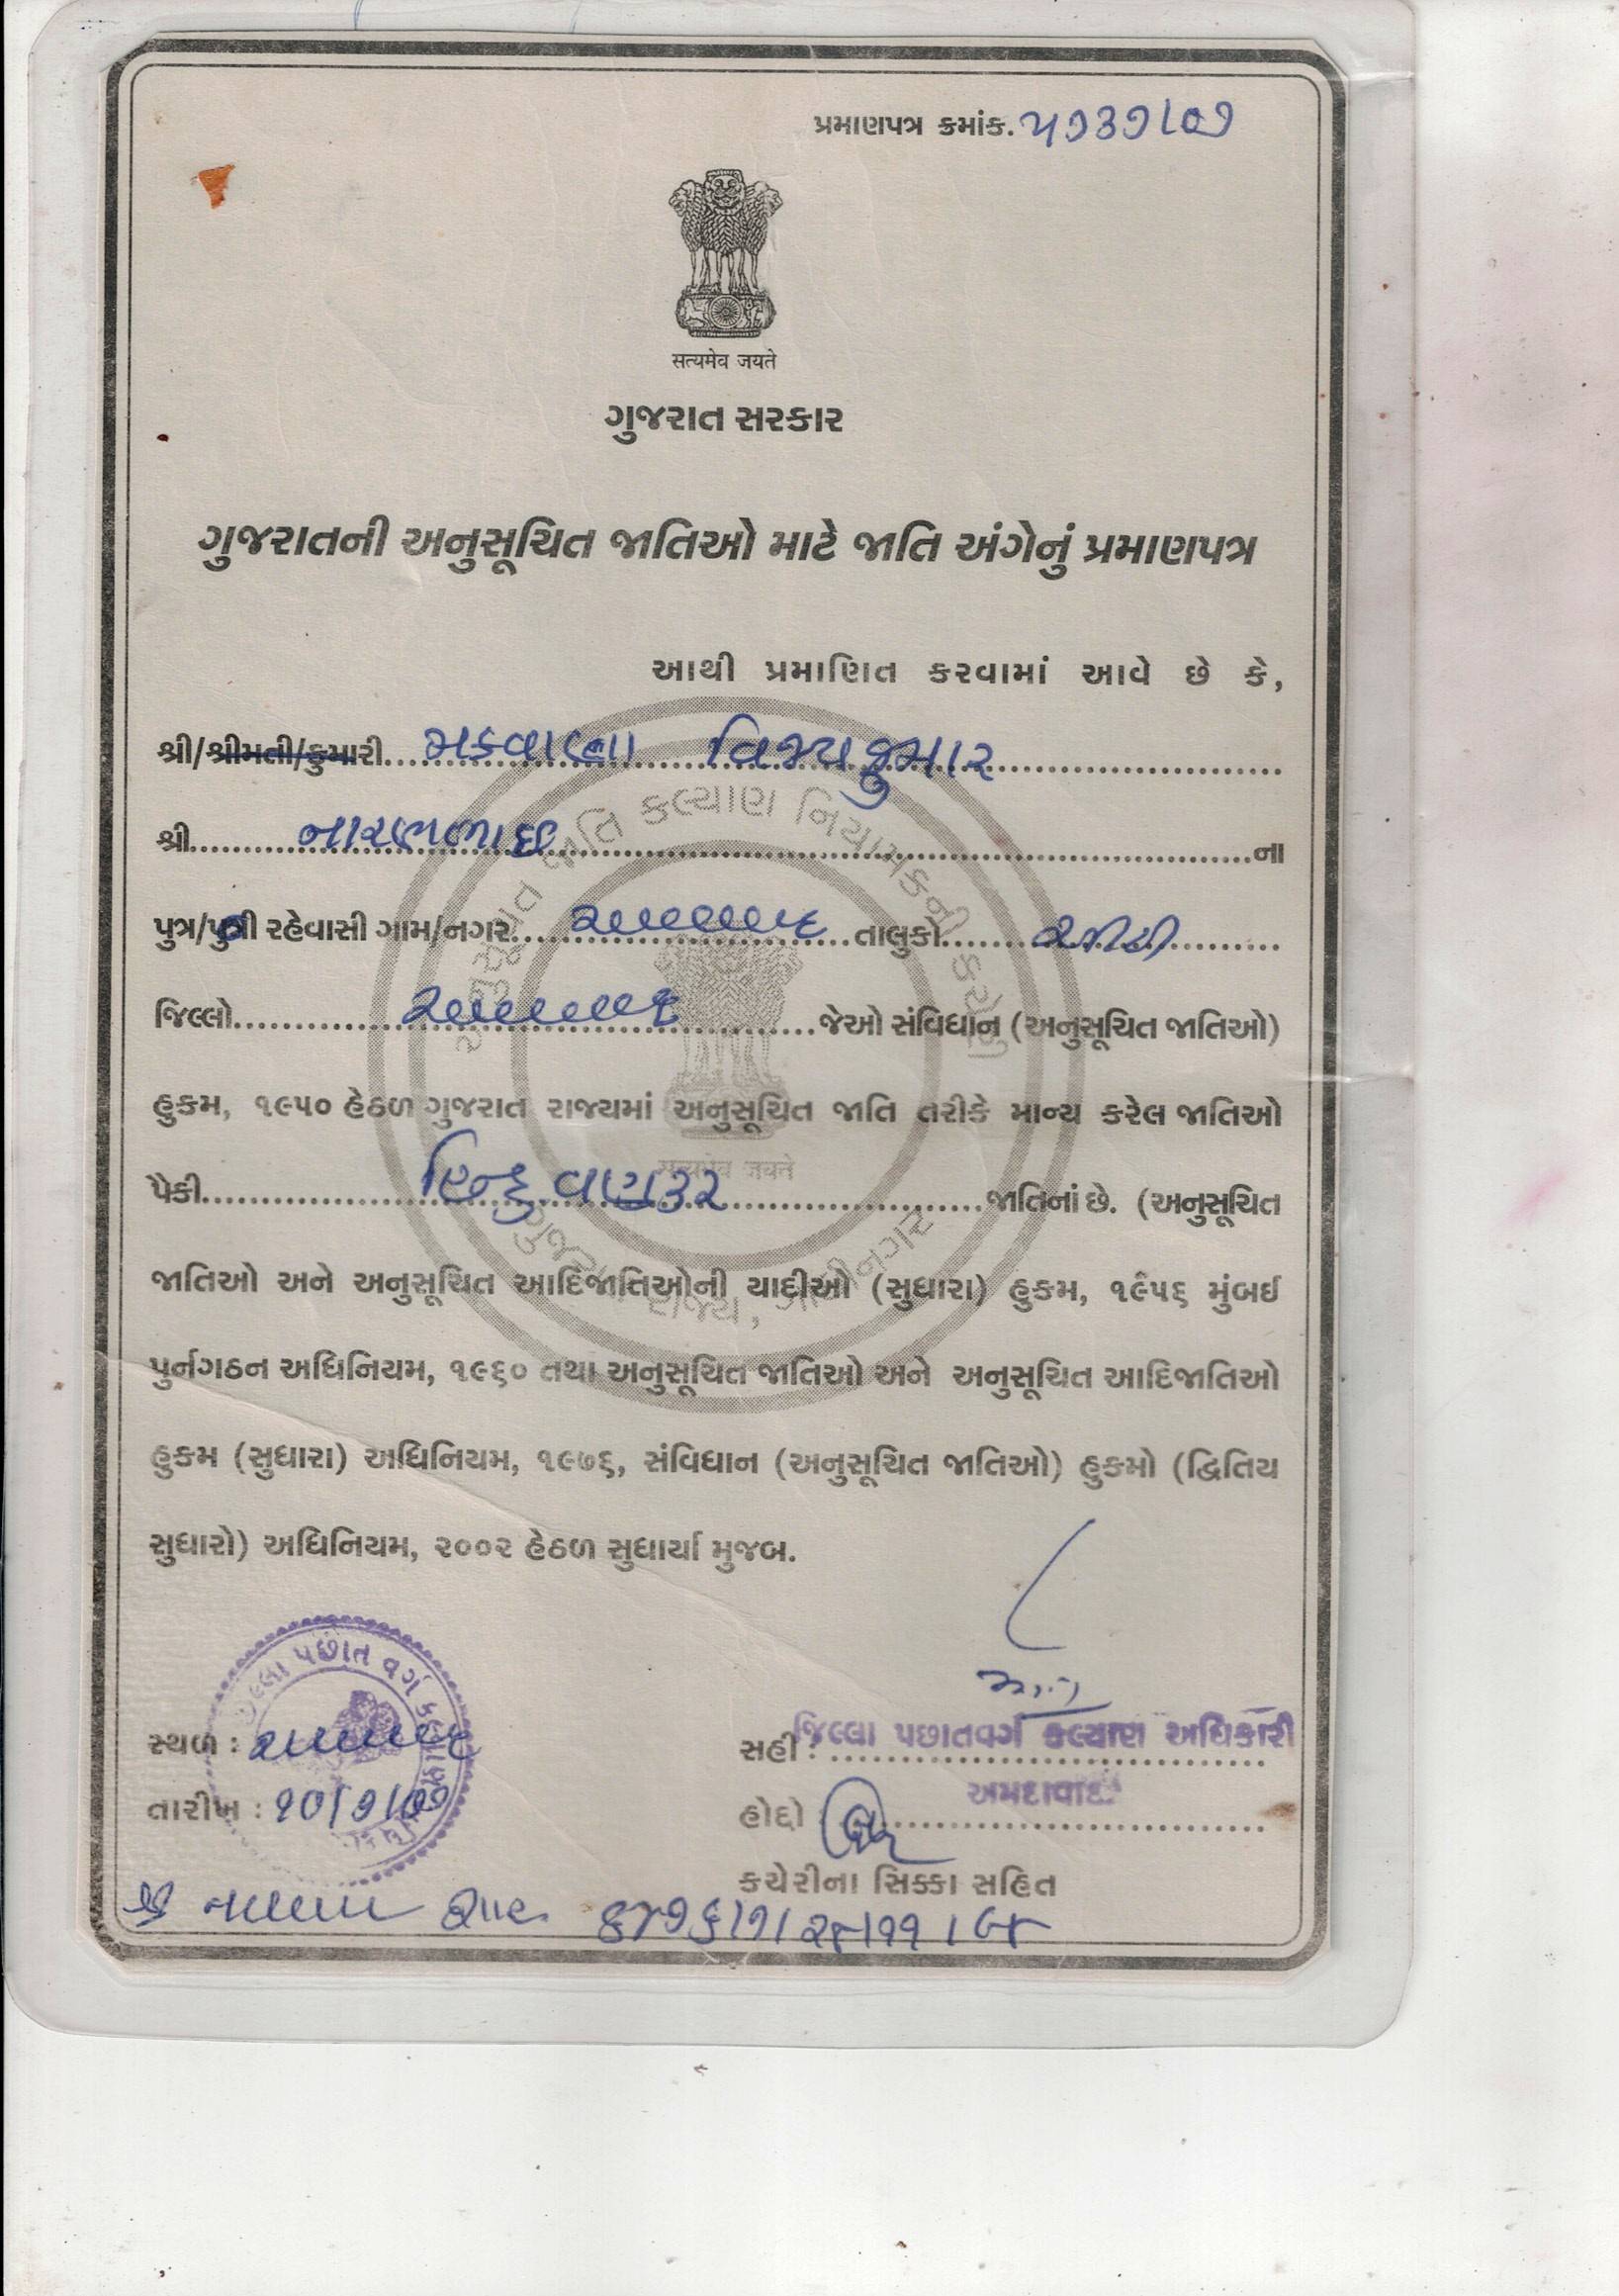 પ્રમાણપત્ર ક્રમાંક. ૫૭૩૭/૦૭
सत्यमेव जयते
ગુજરાત સરકાર
ગુજરાતની અનુસૂચિત જાતિઓ માટે જાતિ અંગેનું પ્રમાણપત્ર
આથી પ્રમાણિત કરવામાં આવે છે કે,
શ્રી/શ્રીમતી/કુમારી મકવાણા વિજયકુમાર
શ્રી નારણભાઇ ના
પુત્ર/પુત્રી રહેવાસી ગામ/નગર અમદાવાદ તાલુકો સીટી
જિલ્લો અમદાવાદ જેઓ સંવિધાન (અનુસૂચિત જાતિઓ)
હુકમ, ૧૯૫૦ હેઠળ ગુજરાત રાજ્યમાં અનુસૂચિત જાતિ તરીકે માન્ય કરેલ જાતિઓ
પૈકી હિન્દુ વણકર જાતિનાં છે. (અનુસૂચિત
જાતિઓ અને અનુસૂચિત આદિજાતિઓની યાદીઓ (સુધારા) હુકમ, ૧૯૫૬ મુંબઈ
પુર્નગઠન અધિનિયમ, ૧૯૬૦ તથા અનુસૂચિત જાતિઓ અને અનુસૂચિત આદિજાતિઓ
હુકમ (સુધારા) અધિનિયમ, ૧૯૭૬, સંવિધાન (અનુસૂચિત જાતિઓ) હુકમો (દ્વિતિય
સુધારો) અધિનિયમ, ૨૦૦૨ હેઠળ સુધાર્યા મુજબ.
સ્થળ : અમદાવાદ
તારીખ : ૧૦/૭/૦૭
સહી :
જિલ્લા પછાતવર્ગ કલ્યાણ અધિકારી
અમદાવાદ.
હોદ્દો
કચેરીના સિક્કા સહિત